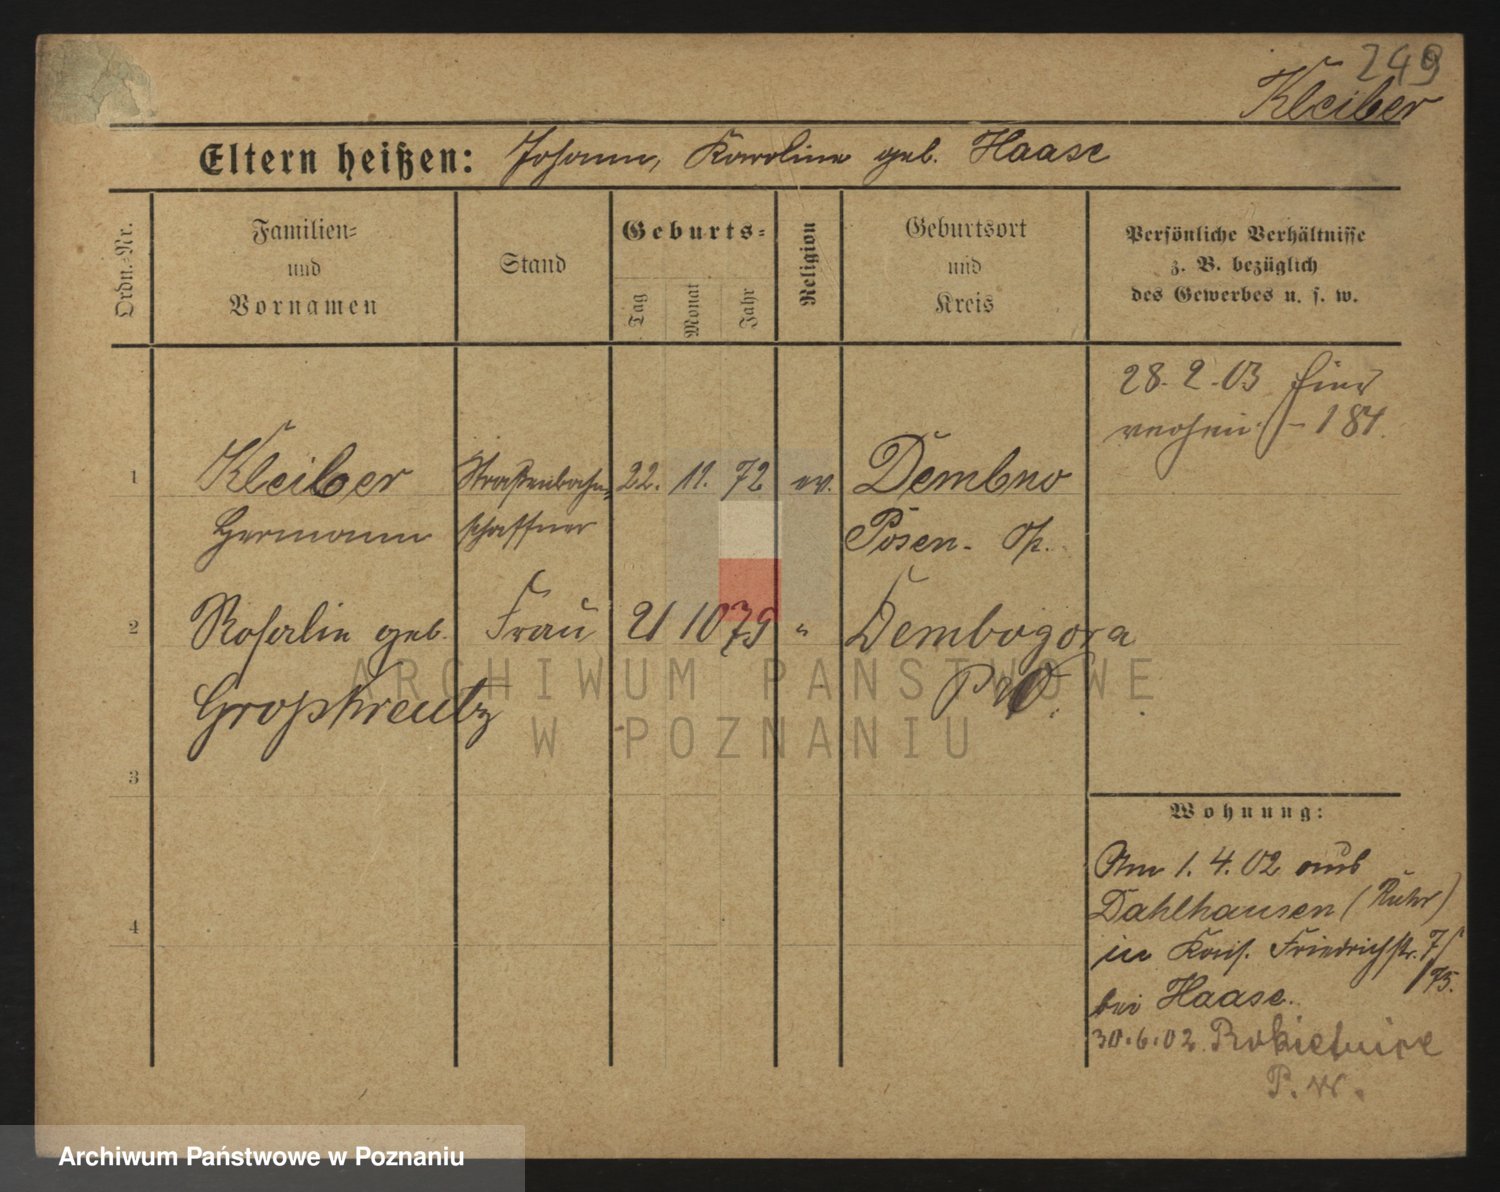 249
Kleiber
Eltern heißen: Johann, Karoline geb. Haase
Ordn.-Nr.
Familien-
und
Vornamen
Stand
Geburts-
Tag
Monat
Jahr
Religion
Geburtsort
und
Kreis
Persönliche Verhältnisse
z. B. bezüglich
des Gewerbes u. s. w.
28. 2. 03 hier
184.
1 Kleiber Straßenbahn- 22. 11. 72 ev. Dembno
Hermann schaffner Posen. O/.
2 Rosalie geb. Frau 21 10 79 " Dembogora
Großkreutz P.O.
3
4
Wohnung:
Am 1. 4. 02 aus
Dahlhausen (Ruhr)
in Kais. Friedrichstr. 7/
175.
bei Haase.
30.6.02 Rokietnice
P. W.
ARCHIWUM PAŃSTWOWE
W POZNANIU
Archiwum Państwowe w Poznaniu